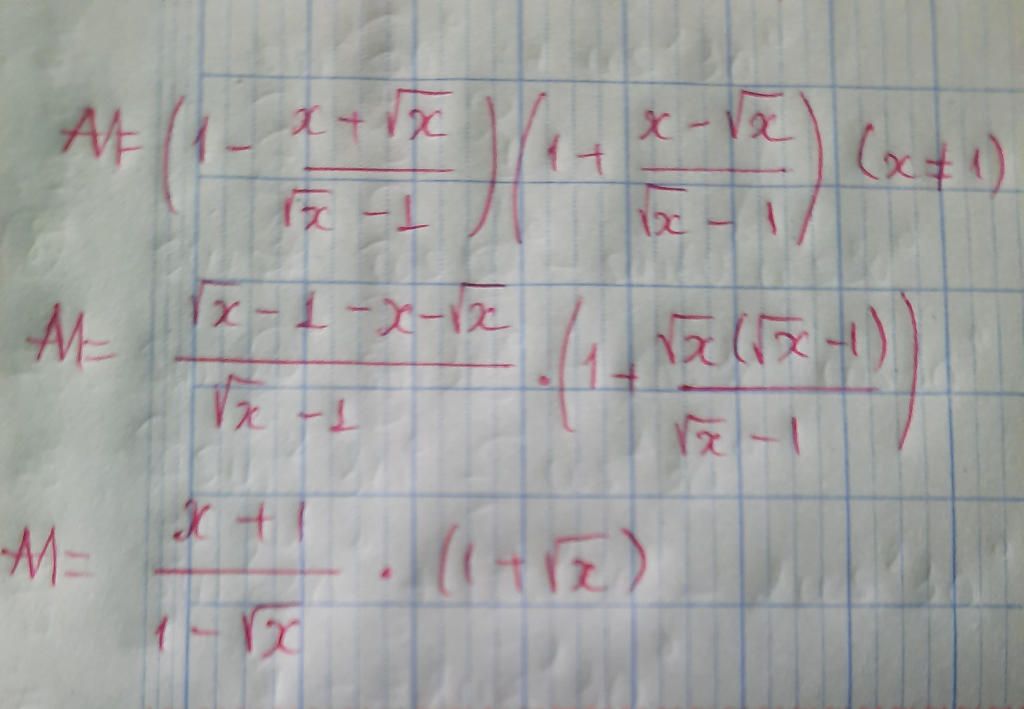 M = (1 - (x + √x)/(√x - 1)) (1 + (x - √x)/(√x - 1)) (x ≠ 1)
M = (√x - 1 - x - √x)/(√x - 1) . (1 + (√x(√x - 1))/(√x - 1))
M = (x + 1)/(1 - √x) . (1 + √x)